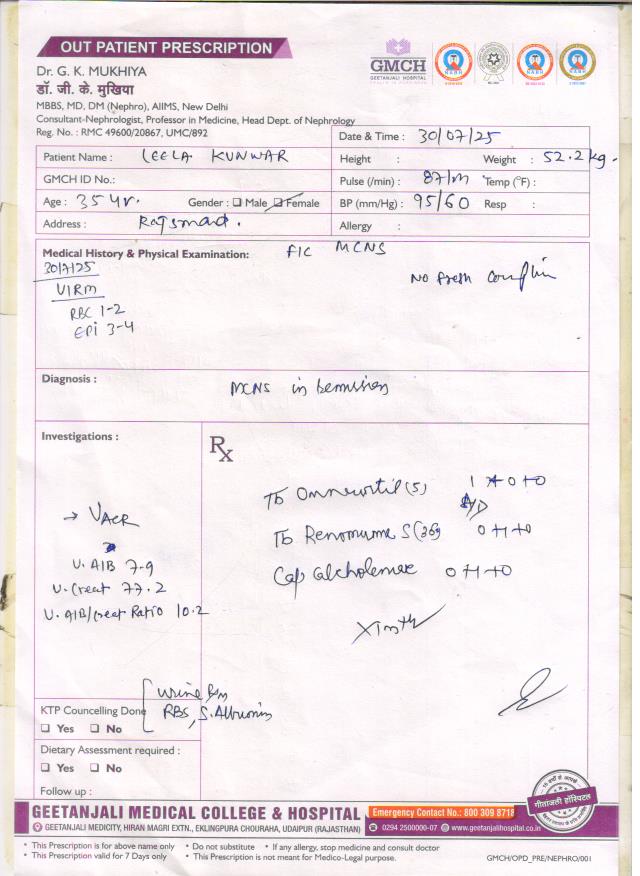 OUT PATIENT PRESCRIPTION
GMCH
GEETANJALI HOSPITAL
Dr. G. K. MUKHIYA
डॉ. जी. के. मुखिया
MBBS, MD, DM (Nephro), AIIMS, New Delhi
Consultant-Nephrologist, Professor in Medicine, Head Dept. of Nephrology
Reg. No. : RMC 49600/20867, UMC/892
Date & Time : 30/07/25
Patient Name : LEELA KUNWAR
Height : Weight : 52.2 kg.
GMCH ID No.:
Pulse (/min) : 87/m Temp (°F) :
Age : 35 yr. Gender : Male Female
BP (mm/Hg) : 95/60 Resp :
Address : Rajsmand.
Allergy :
Medical History & Physical Examination: F/C MCNS
30/7/25
No fresh complin
U/RM
RBC 1-2
EPi 3-4
Diagnosis :
MCNS in
Investigations :
Rx
Tb Omnacortil (5) 1 + 0 + 0
A/D
→ UACR
Tb S (360) 0 + 1 + 0
U. AlB 7.9
Cap 0 + 1 + 0
U. Creat 77.2
U. AlB/Creat Ratio 10.2
X 1 mth
Urine R/m
KTP Councelling Done
RBS, S. Albumin
Yes No
Dietary Assessment required :
Yes No
Follow up :
गीतांजली हॉस्पिटल
GEETANJALI MEDICAL COLLEGE & HOSPITAL
Emergency Contact No.: 800 309 8718
GEETANJALI MEDICITY, HIRAN MAGRI EXTN., EKLINGPURA CHOURAHA, UDAIPUR (RAJASTHAN)
0294 2500000-07 www.geetanjalihospital.co.in
• This Prescription is for above name only • Do not substitute • If any allergy, stop medicine and consult doctor
• This Prescription valid for 7 Days only • This Prescription is not meant for Medico-Legal purpose.
GMCH/OPD_PRE/NEPHRO/001